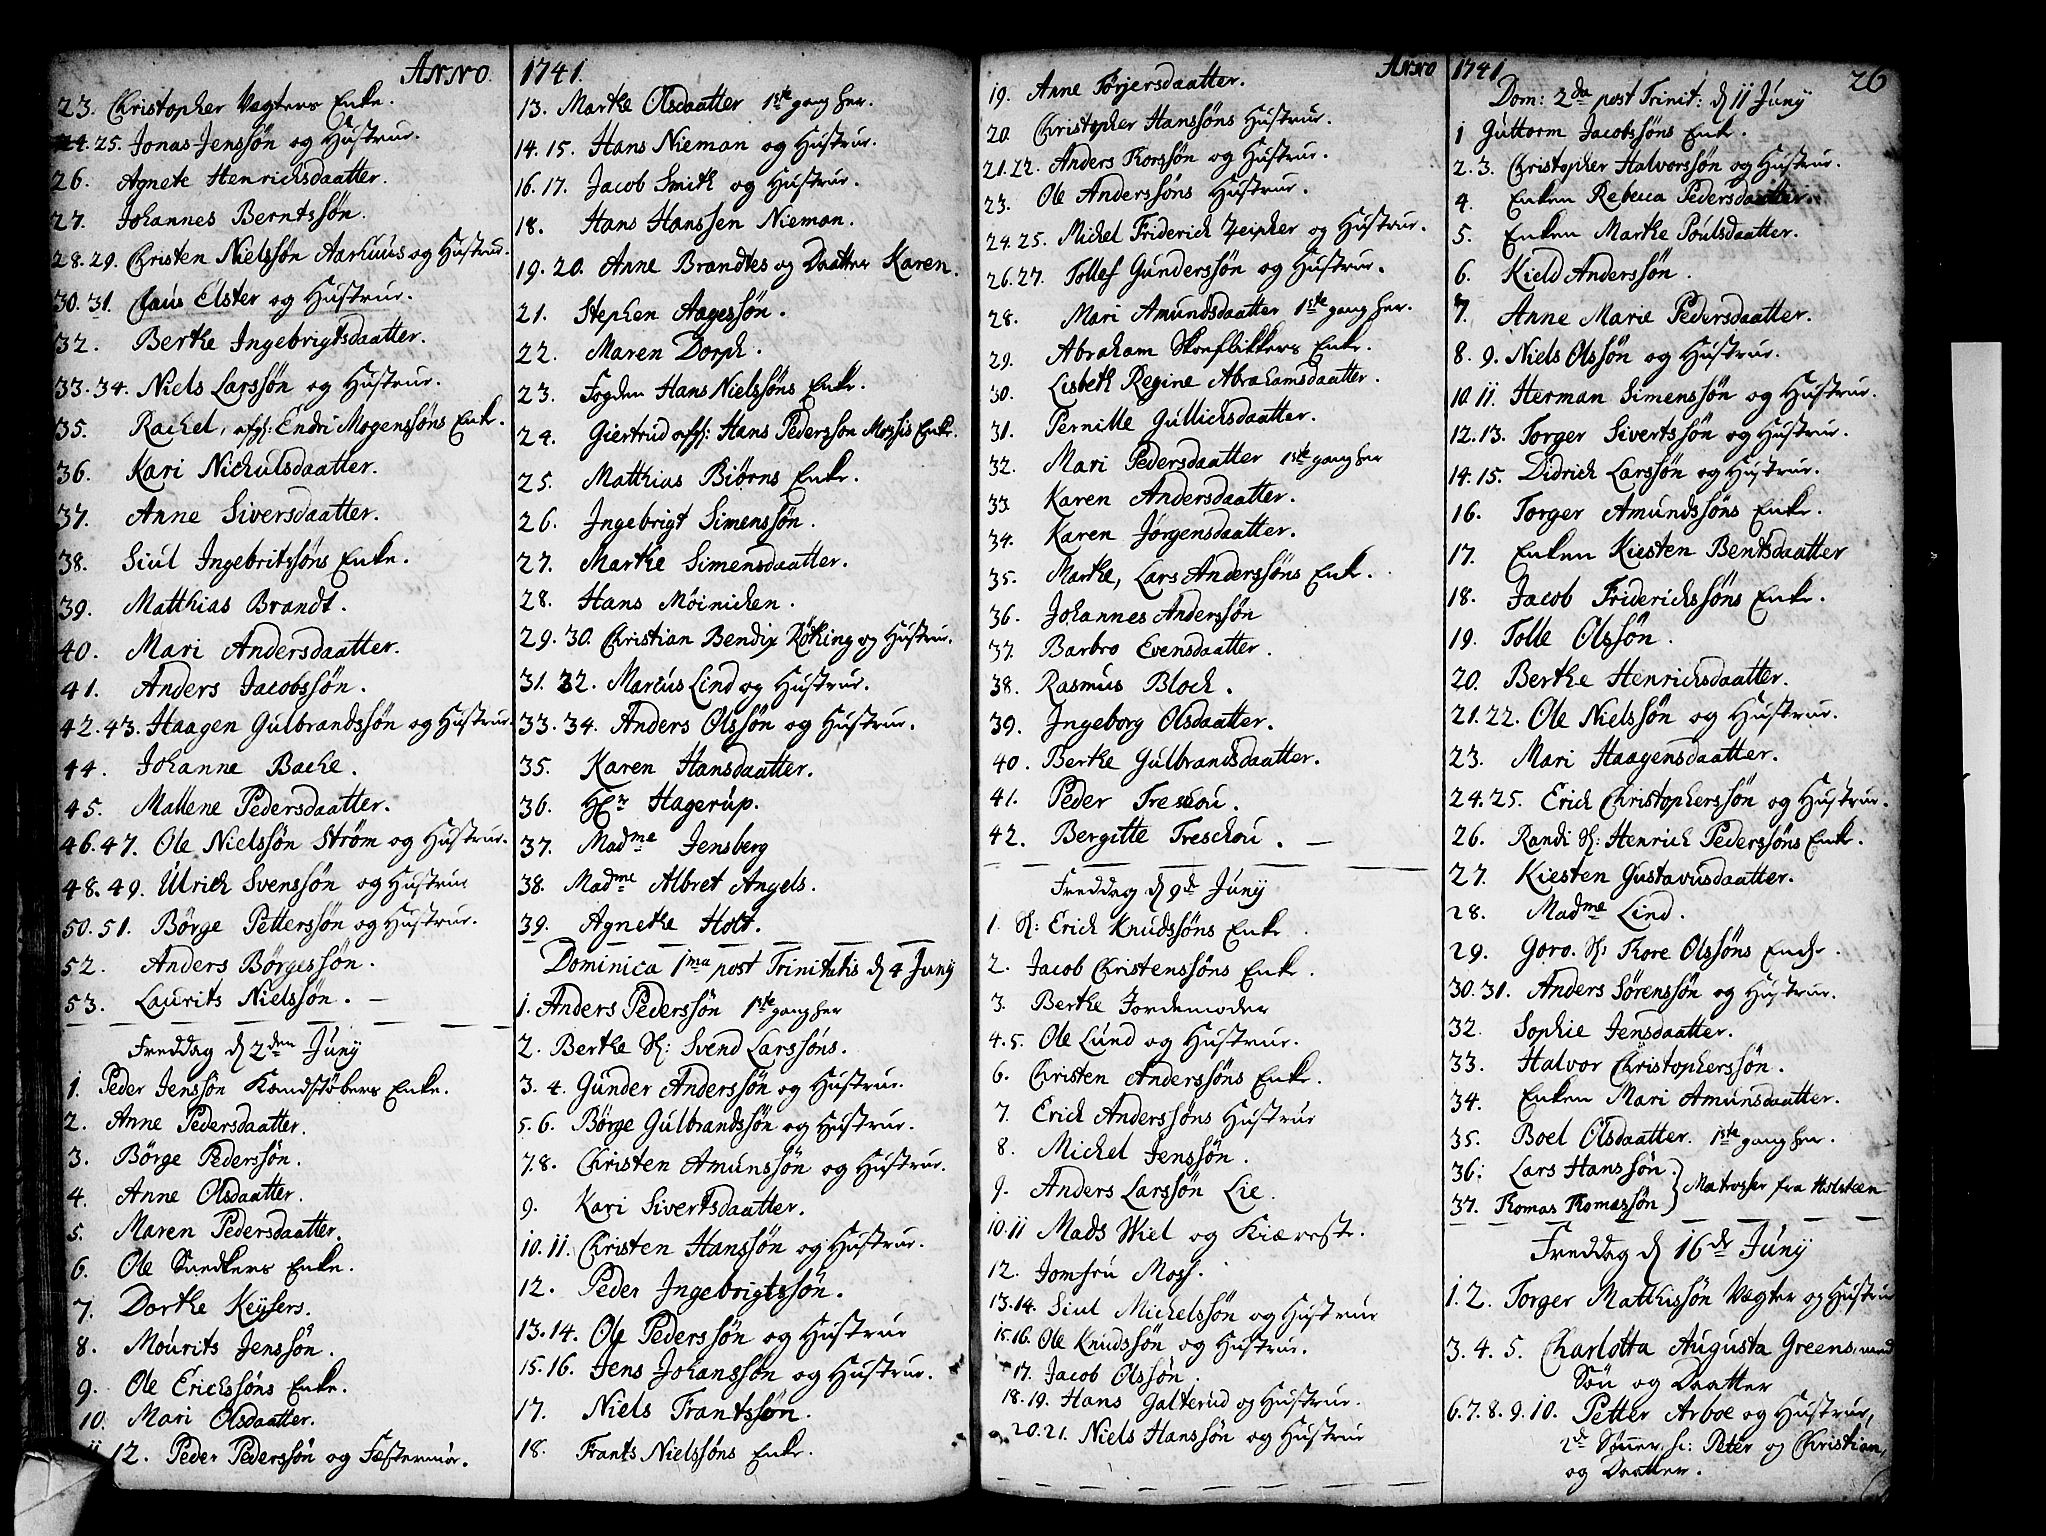 Anno
23. Christopher Vegters Enke.
24. 25. Jonas Jenssøn og Hustrue.
26. Agnete Henrichsdaatter.
27. Johannes Berntssøn.
28. 29. Christen Nielssøn Aarhuus og Hustrue.
30. 31. Claus Elster og Hustrue.
32. Berthe Ingebrigtsdaatter.
33. 34. Niels Larssøn og Hustrue.
35. Rachel, afg: Endri Mogenssøns Enke.
36. Kari Nichulsdaatter.
37. Anne Siversdaatter.
38. Siul Ingebritssøns Enke.
39. Matthias Brandt.
40. Mari Andersdaatter.
41. Anders Jacobssøn.
42. 43. Haagen Gulbrandssøn og Hustrue.
44. Johanne Bache.
45. Mallene Pedersdaatter.
46. 47. Ole Nielssøn Strøm og Hustrue.
48. 49. Ulrich Svenssøn og Hustrue
50. 51. Børge Petterssøn og Hustrue.
52. Anders Børgessøn.
53. Laurits Nielssøn. –
Freddag d 2den Junij
1. Peder Jenssøn Kandstøbers Enke.
2. Anne Pedersdaatter.
3. Børge Pederssøn.
4. Anne Olsdaatter.
5. Maren Pedersdaatter.
6. Ole Snedkers Enke.
7. Dorthe Keysers.
8. Mourits Jenssøn.
9. Ole Erichssøns Enke.
10. Mari Olsdaatter.
11 12. Peder Pederssøn og Festermøe.
1741.
13. Marthe Olsdaatter 1ste gang her.
14. 15. Hans Nieman og Hustrue.
16. 17. Jacob Smith og Hustrue.
18. Hans Hanssen Nieman.
19. 20. Anne Brandtes og Daatter Karen.
21. Stephen Aagessøn.
22. Maren Dorph.
23. Fogden Hans Nielssøns Enke.
24. Giertrud afg: Hans Pedersson Enke.
25. Matthias Biørns Enke.
26. Ingebrigt Simenssøn.
27. Marthe Simensdaatter.
28. Hans Møinichen.
29. 30. Christian Bendix Røthing og Hustrue.
31. 32. Marcus Lind og Hustrue.
33. 34. Anders Olssøn og Hustrue.
35. Karen Hansdaatter.
36. Hr Hagerup.
37. Madme Jensberg
38. Madme Albret Angels.
39. Agnethe Holt.
Dominica 1ma post Trinitatis d 4 Junij
1. Anders Pederssøn 1ste gang her
2. Berthe S: Svend Larssøns.
3. 4. Gunder Anderssøn og Hustrue.
5. 6. Børge Gulbrandssøn og Hustrue.
7. 8. Christen Amunssøn og Hustrue.
9. Kari Sivertsdaatter.
10. 11. Christen Hanssøn og Hustrue.
12. Peder Ingebrigtssøn.
13. 14. Ole Pederssøn og Hustrue
15. 16. Jens Johanssøn og Hustrue.
17. Niels Frantssøn.
18. Frants Nielssøns Enke.
Anno
19. Anne Tørjersdaatter.
20. Christopher Hanssøns Hustrue.
21. 22. Anders Thorssøn og Hustrue.
23. Ole Anderssøns Hustrue.
24. 25. Michel Friderich Zeipher og Hustrue.
26. 27. Tollef Gunderssøn og Hustrue.
28. Mari Amundsdaatter 1ste gang her.
29. Abraham Skoeflikkers Enke.
30. Lisbeth Regine Abrahamsdaatter.
31. Pernille Gullichsdaatter.
32. Mari Pedersdaatter 1ste gang her
33. Karen Andersdaatter.
34. Karen Jørgensdaatter.
35. Marthe, Lars Anderssøns Enke.
36. Johannes Anderssøn
37. Barbro Evensdaatter.
38. Rasmus Bloch.
39. Ingeborg Olsdaatter.
40. Berthe Gulbrandsdaatter.
41. Peder Treschou.
42. Bergitte Treschou. –
Freddag d 9de Junij
1. S: Erich Knudssøns Enke
2. Jacob Christenssøns Enke.
3. Berthe Jordemoder
4. 5. Ole Lund og Hustrue.
6. Christen Anderssøns Enke.
7. Erich Anderssøns Hustrue
8. Michel Jenssøn.
9. Anders Larssøn Lie.
10. 11 Mads Wiel og Kiæreste.
12. Jomfru Mosh.
13. 14. Siul Michelssøn og Hustrue
15. 16. Ole Knudssøn og Hustrue.
17. Jacob Olssøn.
18. 19. Hans Galterud og Hustrue.
20. 21. Niels Hanssøn og Hustrue
1741
26
Dom: 2da post Trinit: d 11 Junij
1 Guttorm Jacobssøns Enke.
2. 3. Christopher Halvorssøn og Hustrue.
4. Enken Rebecca Pedersdaatter.
5. Enken Marthe Poulsdaatter.
6. Kield Anderssøn.
7. Anne Marie Pedersdaatter.
8. 9. Niels Olssøn og Hustrue.
10 11. Herman Simenssøn og Hustrue.
12. 13. Torger Sivertssøn og Hustrue.
14. 15. Didrich Larssøn og Hustrue.
16. Torger Amundssøns Enke.
17. Enken Kiesten Bentsdaatter
18. Jacob Friderichssøns Enke.
19. Tolle Olssøn.
20. Berthe Henrichsdaatter.
21. 22. Ole Nielssøn og Hustrue.
23. Mari Haagensdaatter.
24. 25. Erich Christopherssøn og Hustrue.
26. Randi S: Henrich Pederssøns Enke.
27. Kiesten Gustavusdaatter.
28. Madme Lind.
29. Goro. S: Thore Olssøns Enche.
30. 31. Anders Sørenssøn og Hustrue.
32. Sophie Jensdaatter.
33. Halvor Christopherssøn.
34. Enken Mari Amunsdaatter.
35. Boel Olsdaatter. 1ste gang her.
36: Lars Hanssøn.
37. Thomas Thomassøn } Matroser fra Holsteen
Freddag d 16de Junij
1. 2. Torger Mathissøn Vegter og Hustrue
3. 4. 5. Charlotta Augusta Greens, med
Søn og Daatter
6. 7. 8. 9. 10. Petter Arboe og Hustrue,
2de Sønner, sc: Peter og Christian,
og Daatter.